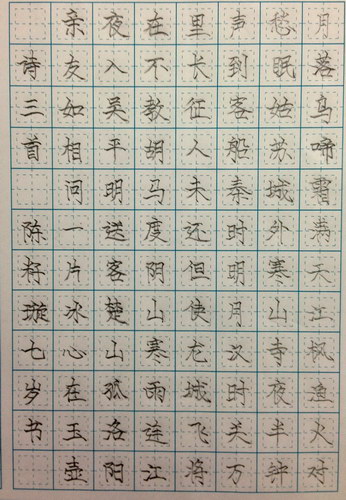 月落乌啼霜满天江枫渔火对
愁眠姑苏城外寒山寺夜半钟
声到客船秦时明月汉时关万
里长征人未还但使龙城飞将
在不教胡马度阴山寒雨连江
夜入吴平明送客楚山孤洛阳
亲友如相问一片冰心在玉壶
诗三首 陈籽璇七岁书